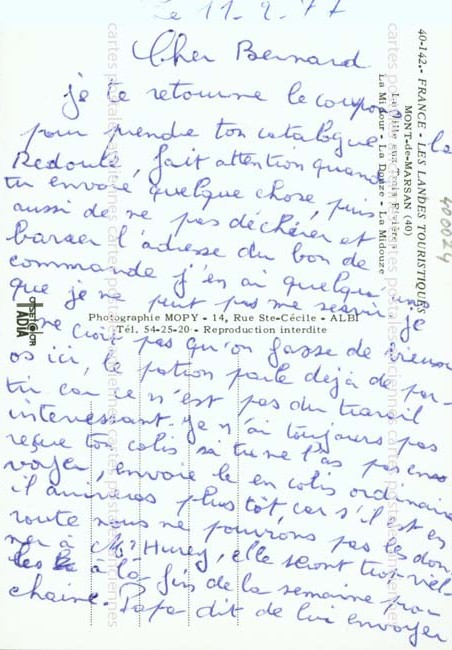 Le 11-2-77
Cher Bernard
je te retourne le coupon
pour prendre ton catalogue la
Redoute, fait attention quand
tu envoie quelque chose, puis
aussi de ne pas déchirer et
barrer l'adresse du bon de
commande j'en ai quelqu'un
que je ne peut pas me servir, je
ne croie pas qu'on fasse de vieux
os ici, le patron parle déjà de par-
tir car ce n'est pas du travail
interressant. je n'ai toujours pas
reçue ton colis si tu ne l'as pas enco
voyer, envoie le en colis ordinaire
il arriveras plus tôt car s'il est en
route nous ne pourrons pas les don
ner à Mr Hurey, elle seront trop viel-
les à la fin de la semaine pro
chaine. Papa dit de lui envoyer
40-142.- FRANCE - LES LANDES TOURISTIQUES
MONT-de-MARSAN (40)
La Ville aux Trois Rivières
La Midour - La Douze - La Midouze
400024
Photographie MOPY - 14, Rue Ste-Cécile - ALBI
Tél. 54-25-20 - Reproduction interdite
OFFSET COLOR
ADIA
cartes postales anciennes